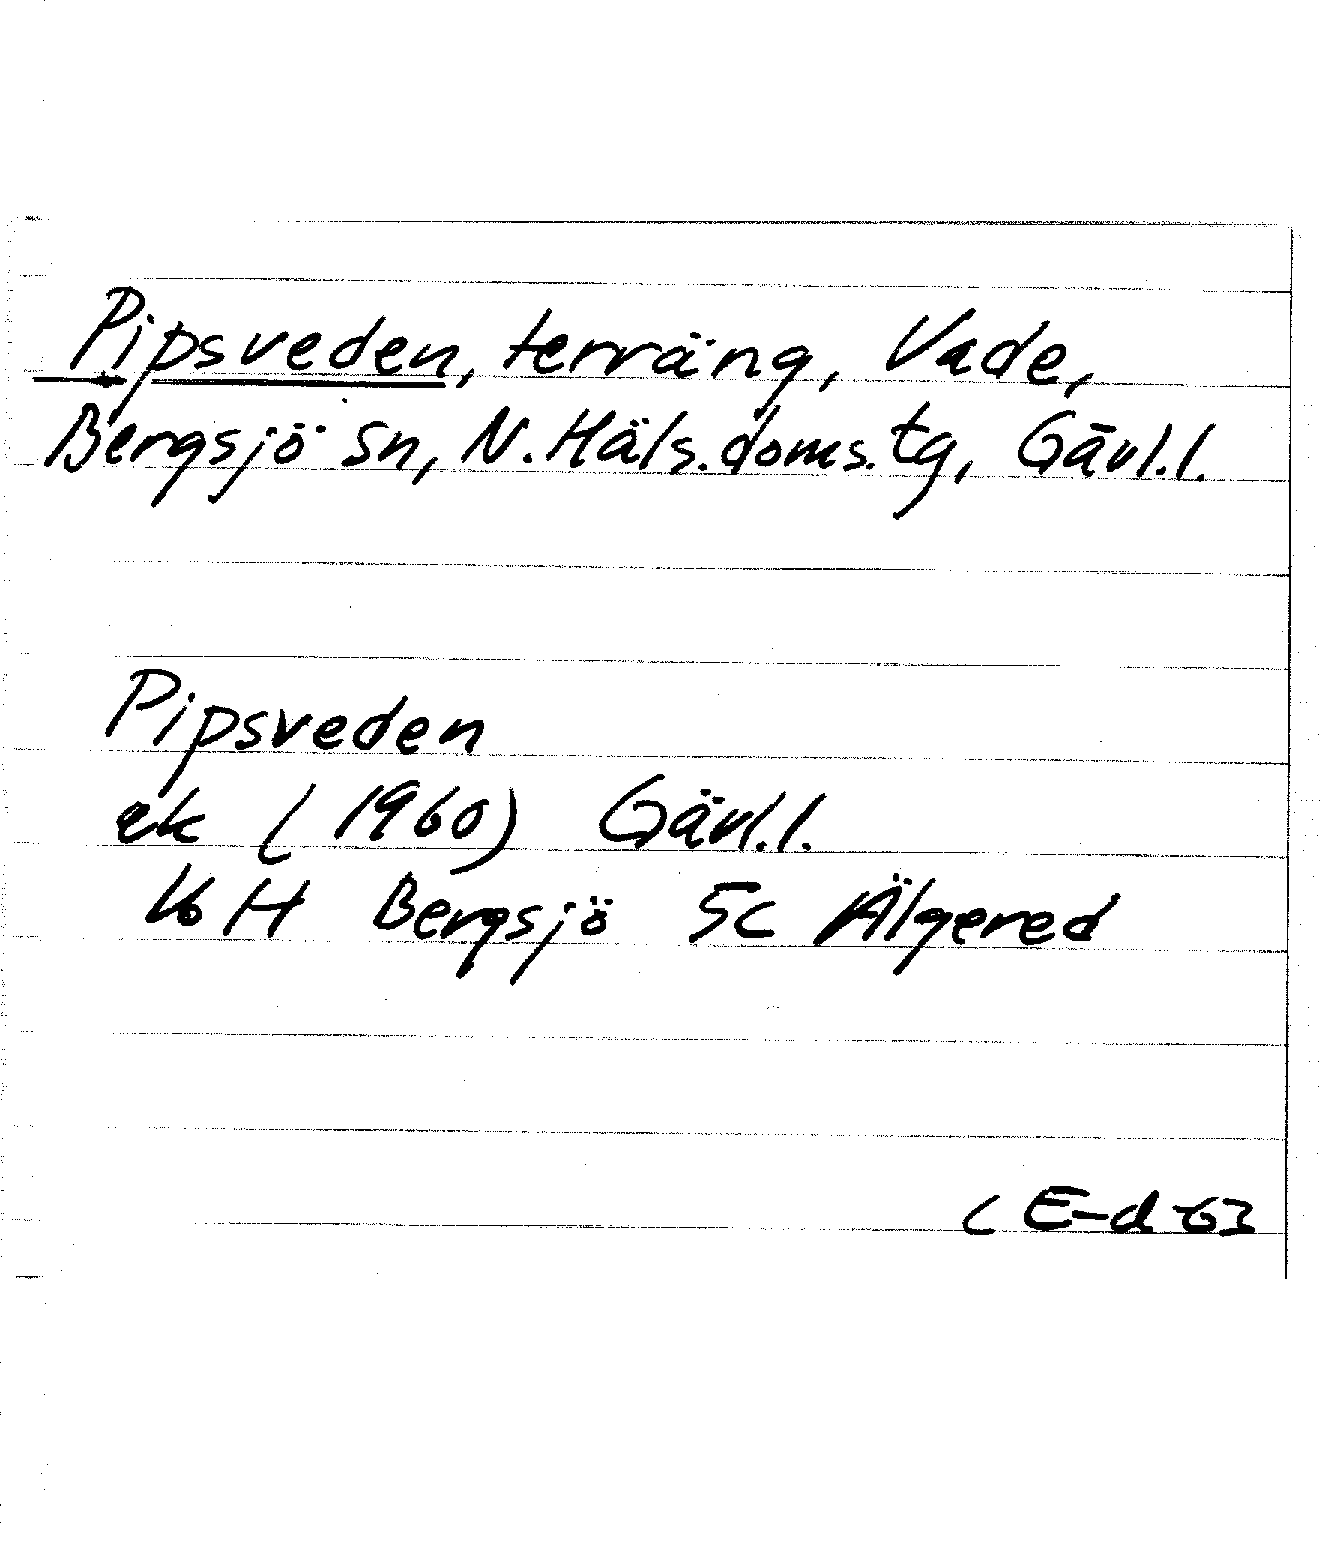 Pipsveden, terräng, Vade,
Bergsjö sn, N.Häls.doms.tg, Gävl.l.
Pipsveden
ek (1960) Gävl.l.
16 H Bergsjö 5c Älgered
E-d -63